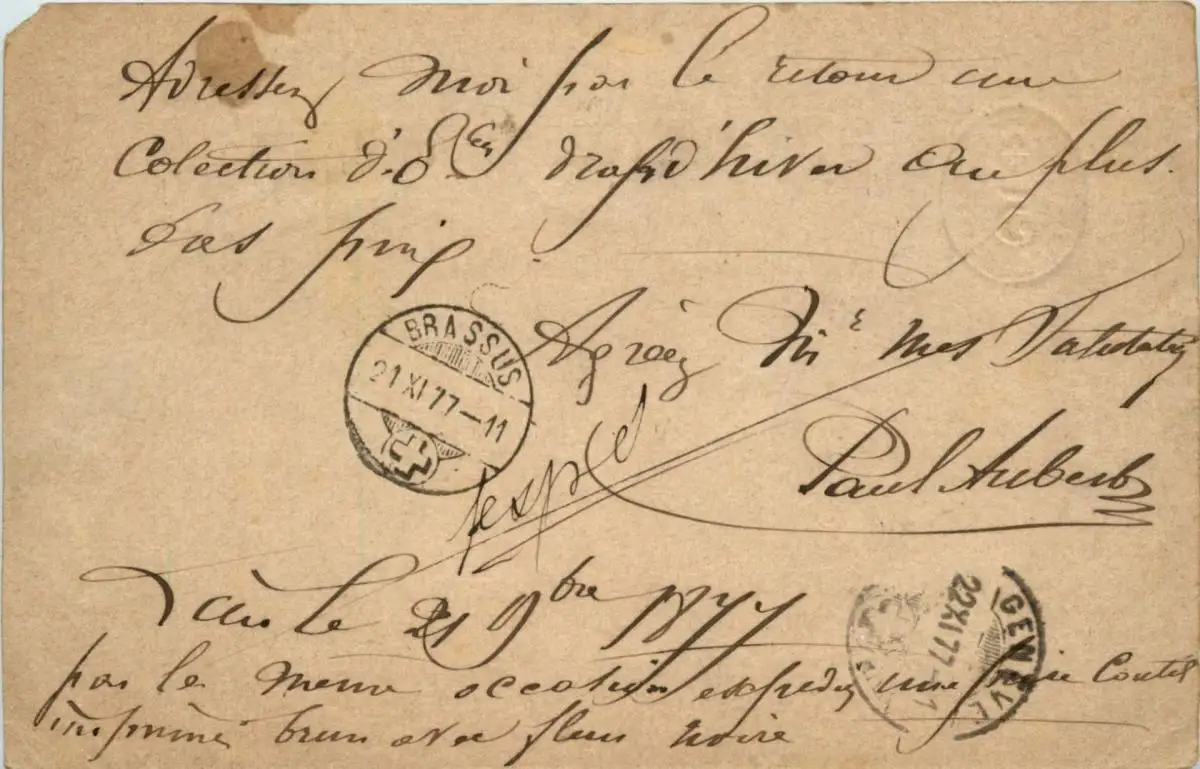 Adressez moi par le retour une
Colection d'éch drap d'hiver au plus
bas prix
BRASSUS
21 XI 77-11
Agréez Mr mes Salutations
expd
Paul Aubert
le 21 9bre 1877
GENÈVE
22 XI 77-1
par le meme occasion expedez une pièce Coutil
imprimé brun avec fleur noire